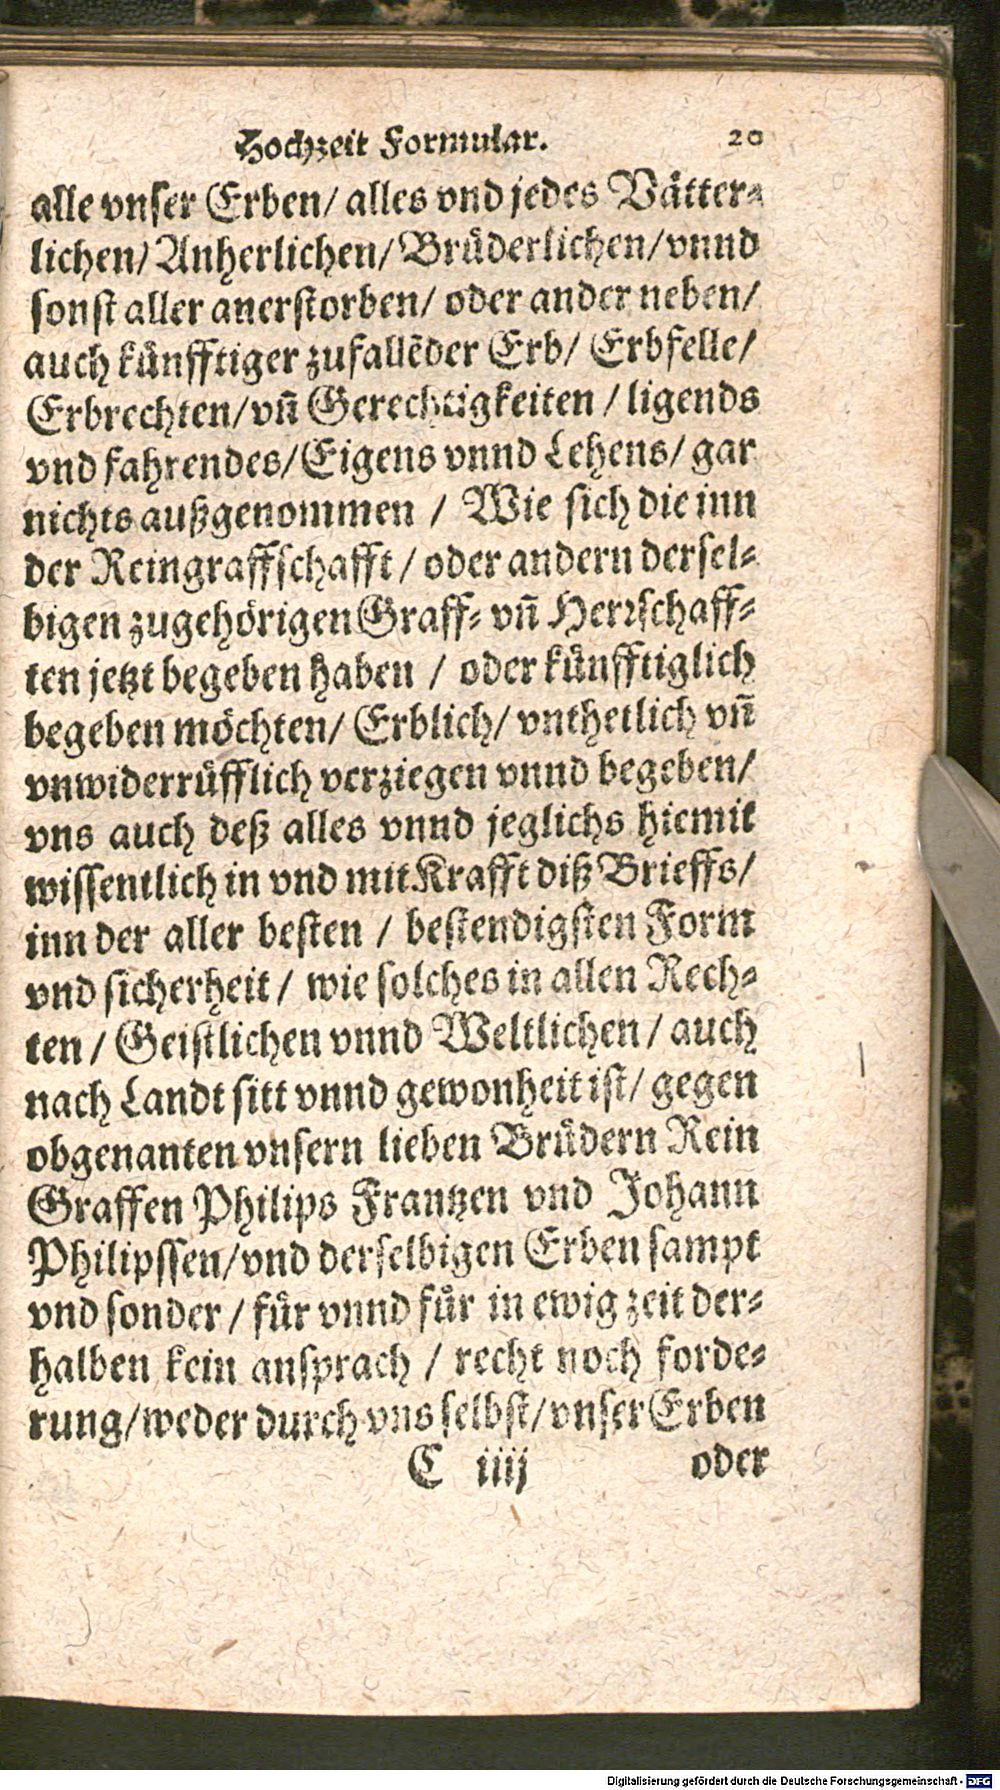 Hochzeit Formular. 20
alle vnser Erben/ alles vnd jedes Vätter-
lichen/ Anherlichen/ Brüderlichen/ vnnd
sonst aller anerstorben/ oder ander neben/
auch künfftiger zufallẽder Erb/ Erbfelle/
Erbrechten/ vñ Gerechtigkeiten / ligends
vnd fahrendes/ Eigens vnnd Lehens/ gar
nichts außgenommen / Wie sich die inn
der Reingraffschafft / oder andern dersel-
bigen zugehörigen Graff- vñ Herrschaff-
ten jetzt begeben haben / oder künfftiglich
begeben möchten/ Erblich/ vnthetlich vñ
vnwiderrüfflich verziegen vnnd begeben/
vns auch deß alles vnnd jeglichs hiemit
wissentlich in vnd mit Krafft diß Brieffs/
inn der aller besten / bestendigsten Form
vnd sicherheit / wie solches in allen Rech-
ten / Geistlichen vnnd Weltlichen / auch
nach Landt sitt vnnd gewonheit ist/ gegen
obgenanten vnsern lieben Brüdern Rein
Graffen Philips Frantzen vnd Johann
Philipssen/ vnd derselbigen Erben sampt
vnd sonder / für vnnd für in ewig zeit der-
halben kein ansprach / recht noch forde-
rung/ weder durch vns selbst/ vnser Erben
C iiij oder
Digitalisierung gefördert durch die Deutsche Forschungsgemeinschaft - DFG